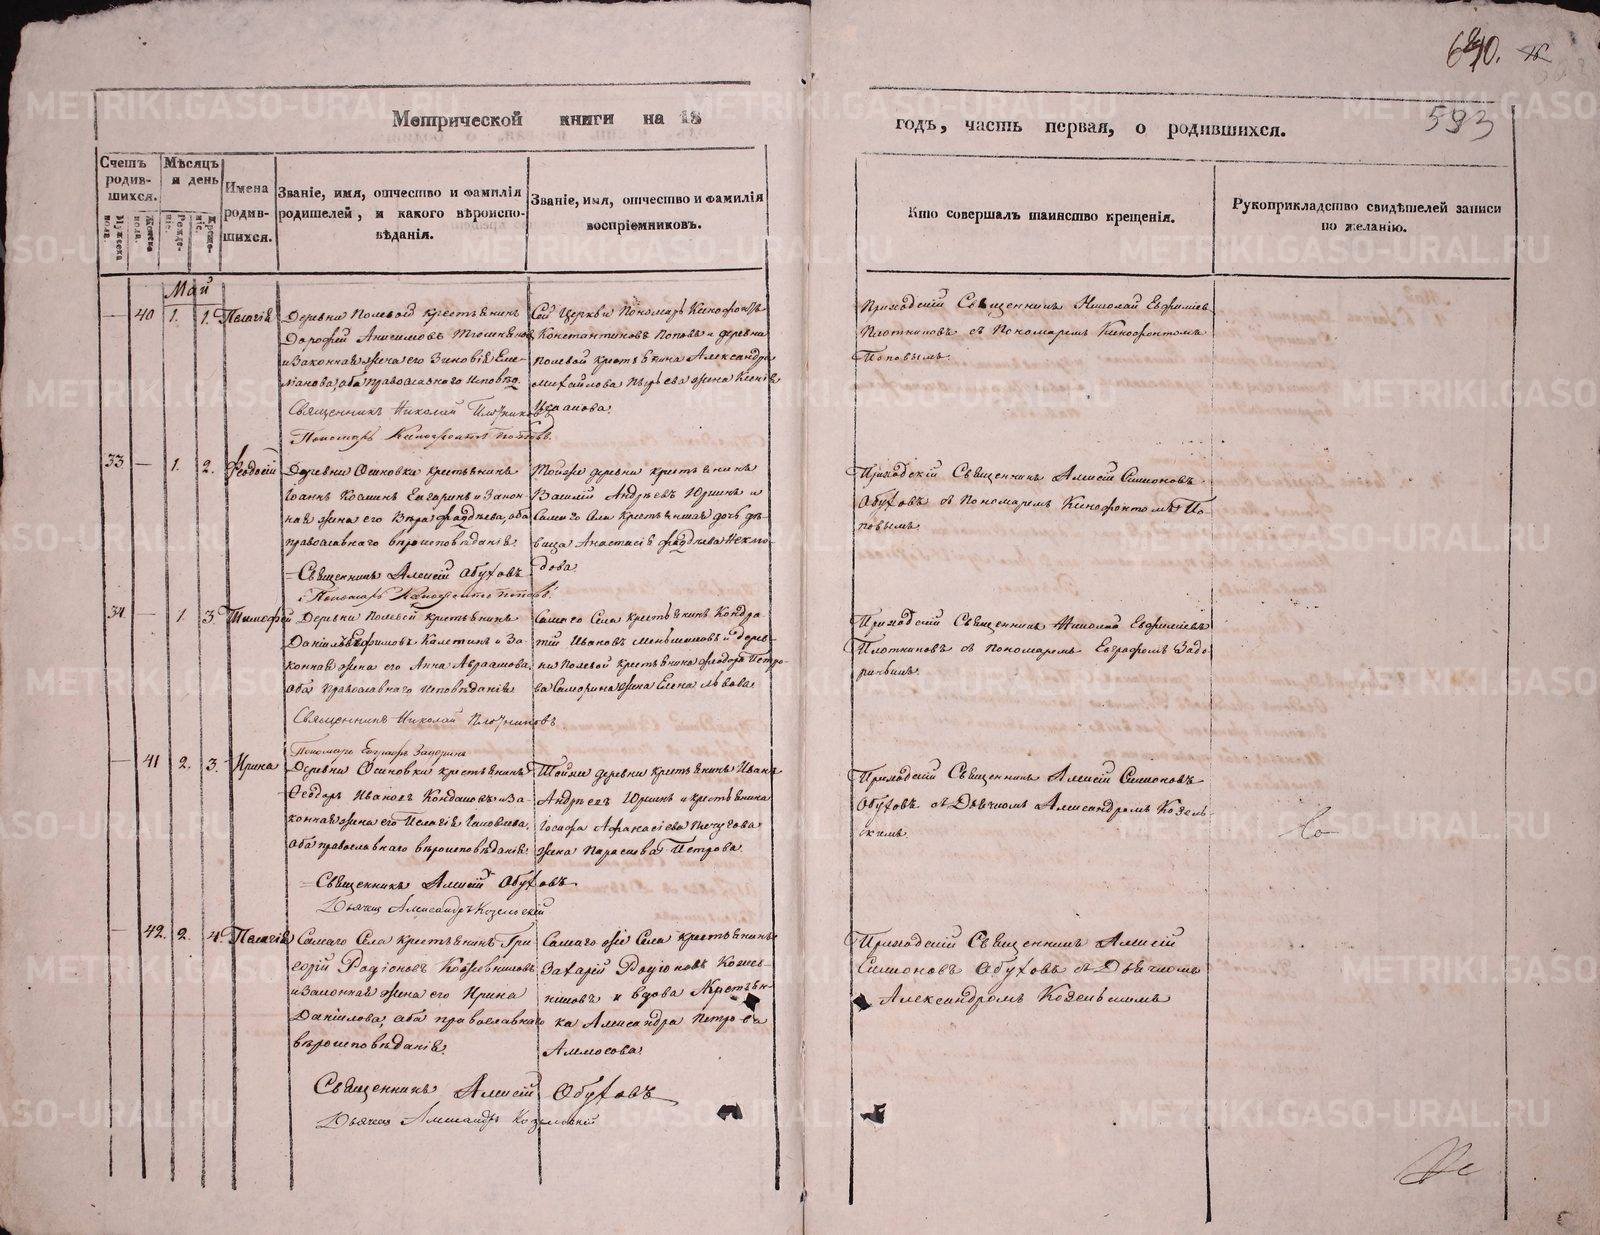 640.
593
Метрической книги на 18
годъ, часть первая, о родившихся.
Счетъ родив-шихся.
Мѣсяцъ и день
Имена родив-шихся.
Званіе, имя, отчество и фамилія родителей, и какого вѣроиспо-вѣданія.
Званіе, имя, отчество и фамилія воспріемниковъ.
Кто совершалъ таинство крещенія.
Рукоприкладство свидѣтелей записи по желанію.
Мужеска пола.
Женска пола.
Рожде-нія.
Креще-нія.
Май
— 40 1. 1. Пелагія
Деревни Полевой крестьянинъ
Дорофей Анисимовъ
и Законная жена его Зиновія Еме-
ліанова, оба православнаго исповѣд.
Священникъ Николай Плотниковъ
Пономарь Ксенофонтъ Поповъ.
Сей Церкви Пономарь Ксенофонтъ
Константиновъ Поповъ и деревни
Полевой крестьянина Александра
Михайлова жена Ксенія
Приходскій Священникъ Николай Евфиміевъ
Плотниковъ съ Пономаремъ Ксенофонтомъ
Поповымъ.
33. — 1. 2. Феодосій
Деревни Осиновки крестьянинъ
Іоаннъ Косминъ и Закон-
ная жена его Вѣра Фаддѣева, оба
православнаго вѣроисповѣданія.
Священникъ Алексій Обуховъ
Пономарь Ксенофонтъ Поповъ.
Тойже деревни крестьянинъ
Василій Андрѣевъ Юринъ и
Самаго Села Крестьянская дочь дѣ-
вица Анастасія Фаддѣева
Приходскій Священникъ Алексій Симіоновъ
Обуховъ съ Пономаремъ Ксенофонтомъ По-
повымъ.
34. — 1. 3. Тимофей
Деревни Полевой крестьянинъ
Даніилъ Евфимовъ и За-
конная жена его Анна Авраамова,
оба православнаго исповѣданія.
Священникъ Николай Плотниковъ
Пономарь Евграфъ Задоринъ
Самаго Села крестьянинъ Кондра
тій Ивановъ Меньшиковъ и дерев-
ни Полевой крестьянина Федора Петро-
ва жена Елена Львова.
Приходскій Священникъ Николай Евфиміевъ
Плотниковъ съ пономаремъ Евграфомъ Задо-
ринымъ.
— 41 2. 3. Ирина
Деревни Осиновки крестьянинъ
Феодоръ Ивановъ Кондаковъ и За-
конная жена его Пелагія
оба православнаго вѣроисповѣданія.
Священникъ Алексій Обуховъ
Дьячекъ Александръ Козельскій
Тойже деревни крестьянинъ Иванъ
Андрѣевъ Юринъ и крестьянина
Іосифа Афанасіева Пичугова
жена Параскева Петрова.
Приходскій Священникъ Алексій Симіоновъ
Обуховъ съ Дьячкомъ Александромъ Козель-
скимъ.
— 42. 2. 4. Пелагія
Самаго Села крестьянинъ Гри-
горій Родіоновъ Кожевниковъ
и Законная жена его Ирина
Даніилова, оба православнаго
вѣроисповѣданія.
Священникъ Алексій Обуховъ
Дьячекъ Александръ Козельскій
Самаго же Села крестьянинъ
Захарій Родіоновъ Кожев-
никовъ и вдова Крестьян-
ка Александра Петрова
Аммосова.
Приходскій Священникъ Алексій
Симіоновъ Обуховъ съ Дьячкомъ
Александромъ Козельскимъ
METRIKI.GASO-URAL.RU